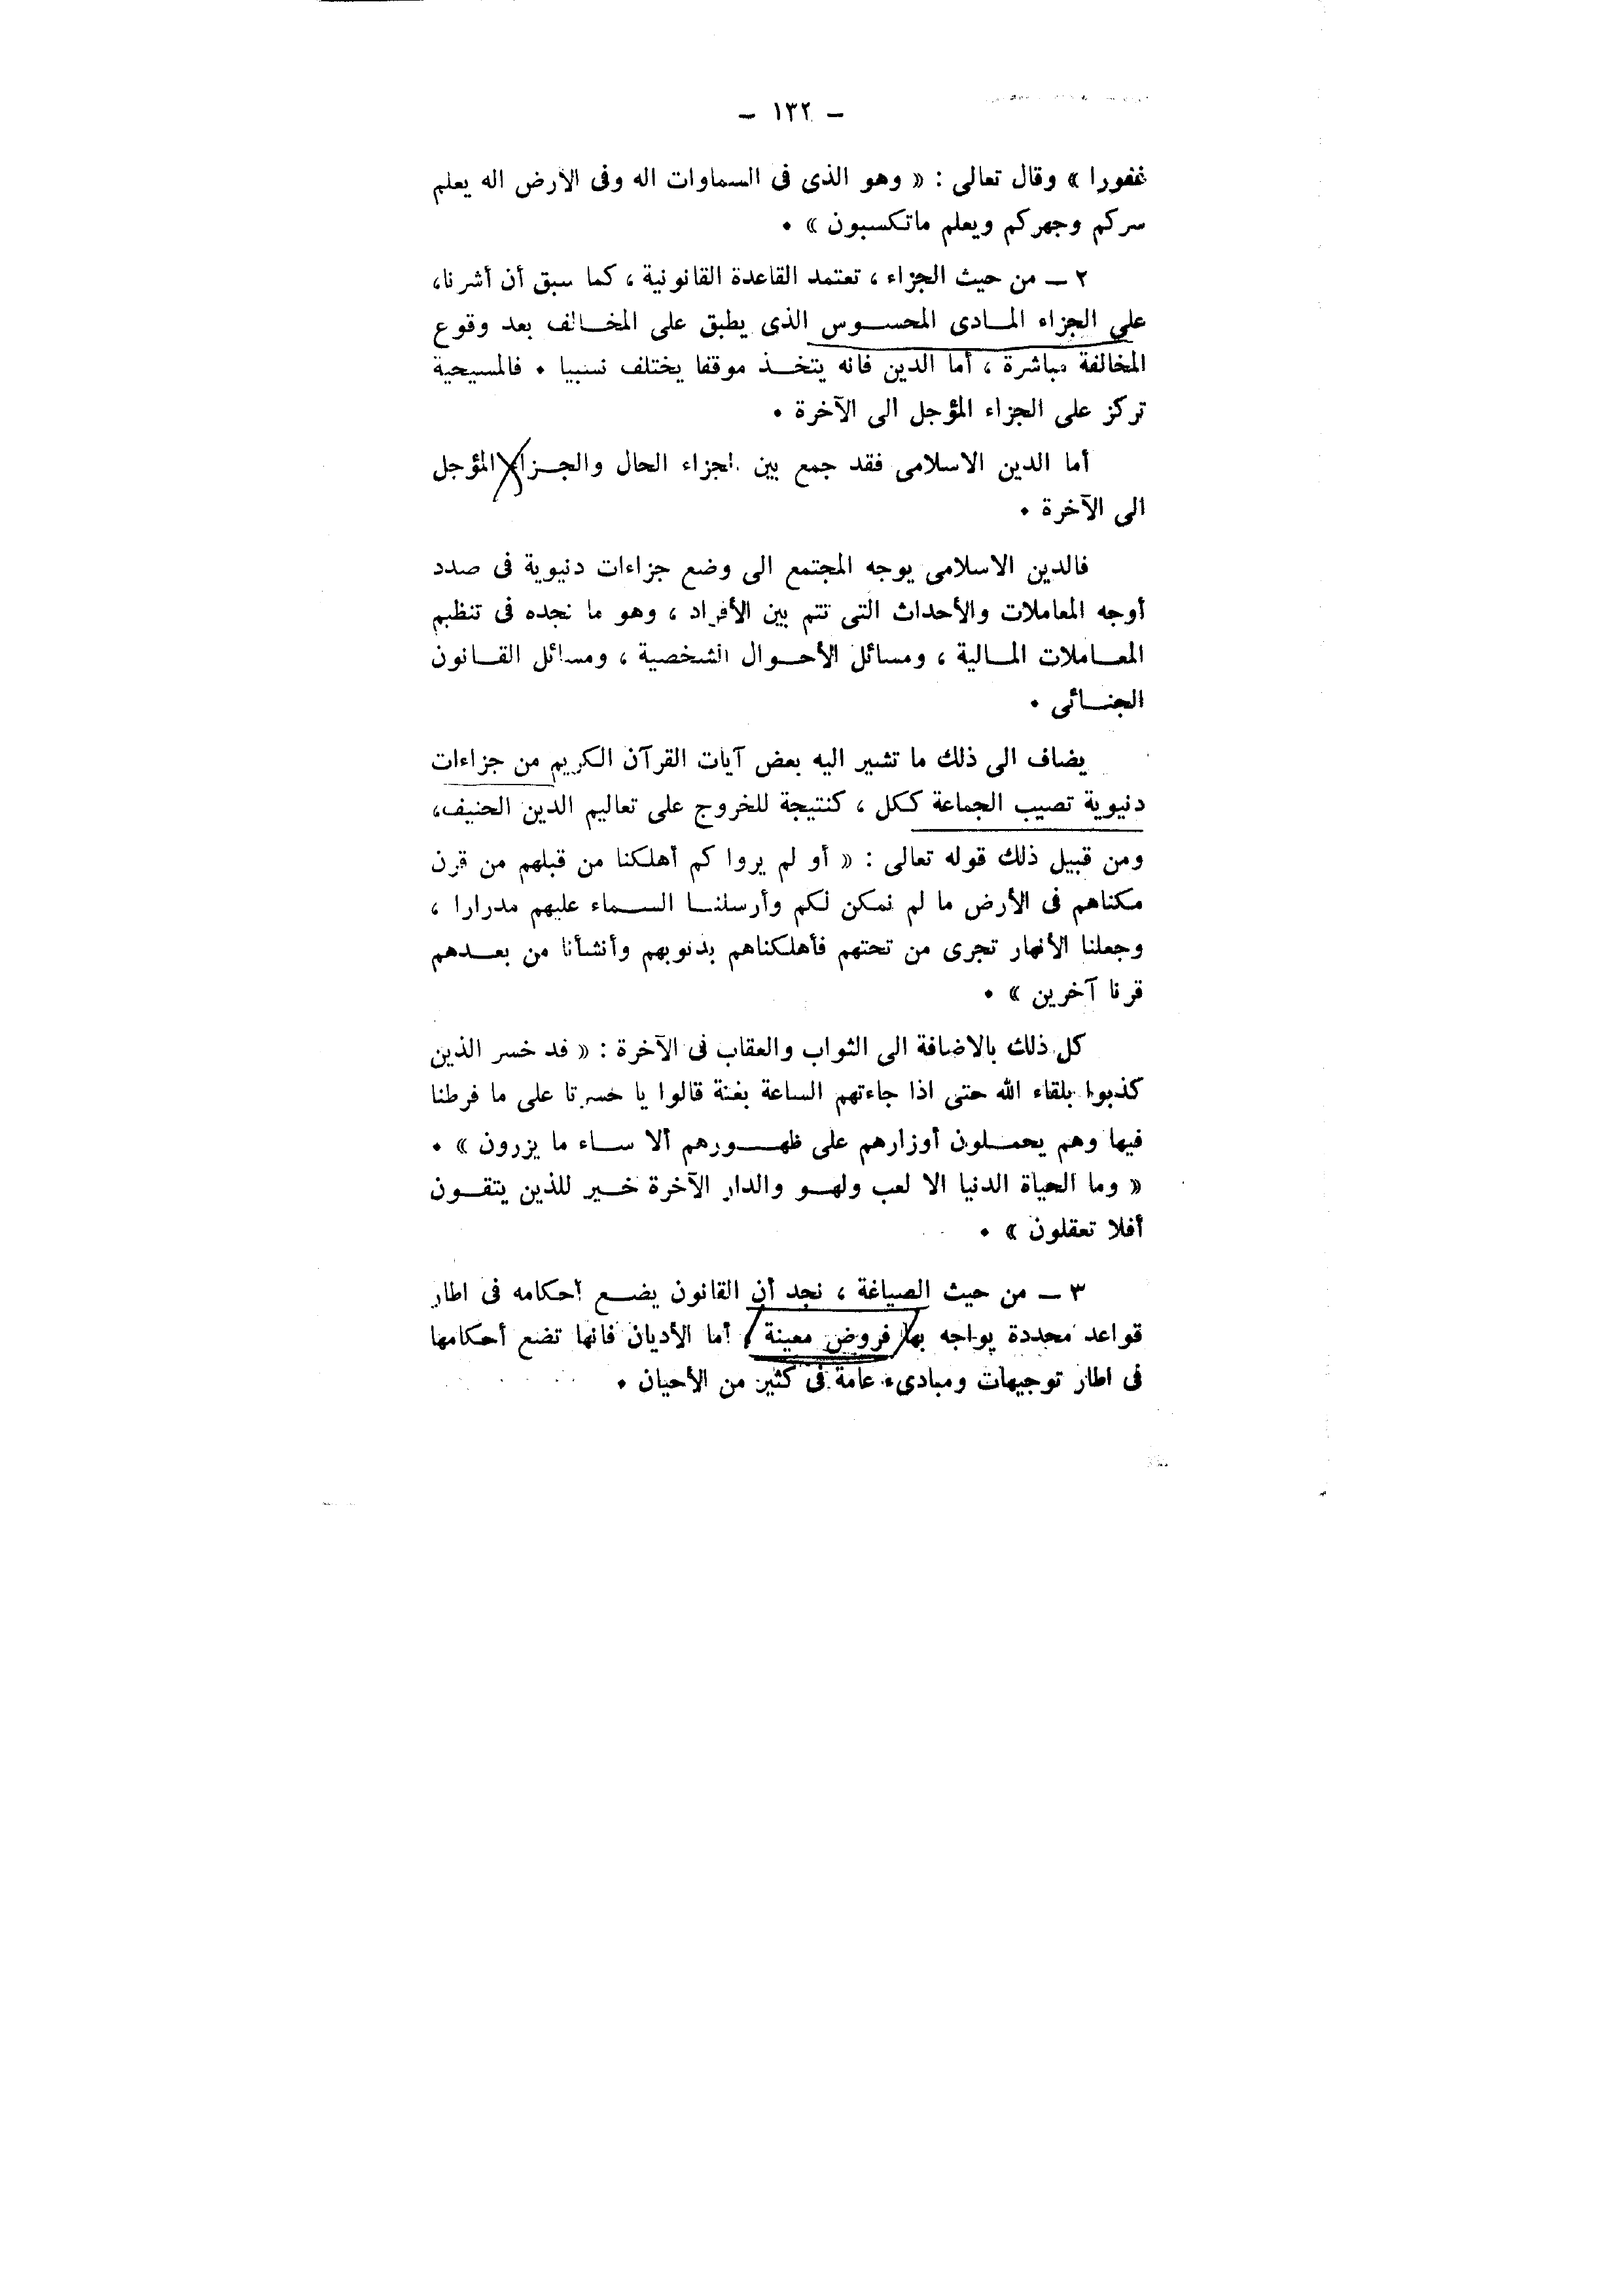 – ١٣٢ –
غفورا » وقال تعالى : « وهو الذى فى السماوات اله وفى الأرض اله يعلم
سركم وجهركم ويعلم ماتكسبون » ٠
٢ – من حيث الجزاء ، تعتمد القاعدة القانونية ، كما سبق أن أشرنا،
على الجزاء المادى المحسوس الذى يطبق على المخالف بعد وقوع
المخالفة مباشرة ، أما الدين فانه يتخذ موقفا يختلف نسبيا ٠ فالمسيحية
تركز على الجزاء المؤجل الى الآخرة ٠
أما الدين الاسلامى فقد جمع بين الجزاء الحال والجزاء المؤجل
الى الآخرة ٠
فالدين الاسلامى يوجه المجتمع الى وضع جزاءات دنيوية فى صدد
أوجه المعاملات والأحداث التى تتم بين الأفراد ، وهو ما نجده فى تنظيم
المعاملات المالية ، ومسائل الأحوال الشخصية ، ومسائل القانون
الجنائى ٠
يضاف الى ذلك ما تشير اليه بعض آيات القرآن الكريم من جزاءات
دنيوية تصيب الجماعة ككل ، كنتيجة للخروج على تعاليم الدين الحنيف،
ومن قبيل ذلك قوله تعالى : « أو لم يروا كم أهلكنا من قبلهم من قرن
مكناهم فى الأرض ما لم نمكن لكم وأرسلنا السماء عليهم مدرارا ،
وجعلنا الأنهار تجرى من تحتهم فأهلكناهم بذنوبهم وأنشأنا من بعدهم
قرنا آخرين » ٠
كل ذلك بالاضافة الى الثواب والعقاب فى الآخرة : « قد خسر الذين
كذبوا بلقاء الله حتى اذا جاءتهم الساعة بغتة قالوا يا حسرتا على ما فرطنا
فيها وهم يحملون أوزارهم على ظهورهم ألا ساء ما يزرون » ٠
« وما الحياة الدنيا الا لعب ولهو والدار الآخرة خير للذين يتقون
أفلا تعقلون » ٠
٣ – من حيث الصياغة ، نجد أن القانون يضع أحكامه فى اطار
قواعد محددة يواجه بها فروض معينة ، أما الأديان فانها تضع أحكامها
فى اطار توجيهات ومبادىء عامة فى كثير من الأحيان ٠